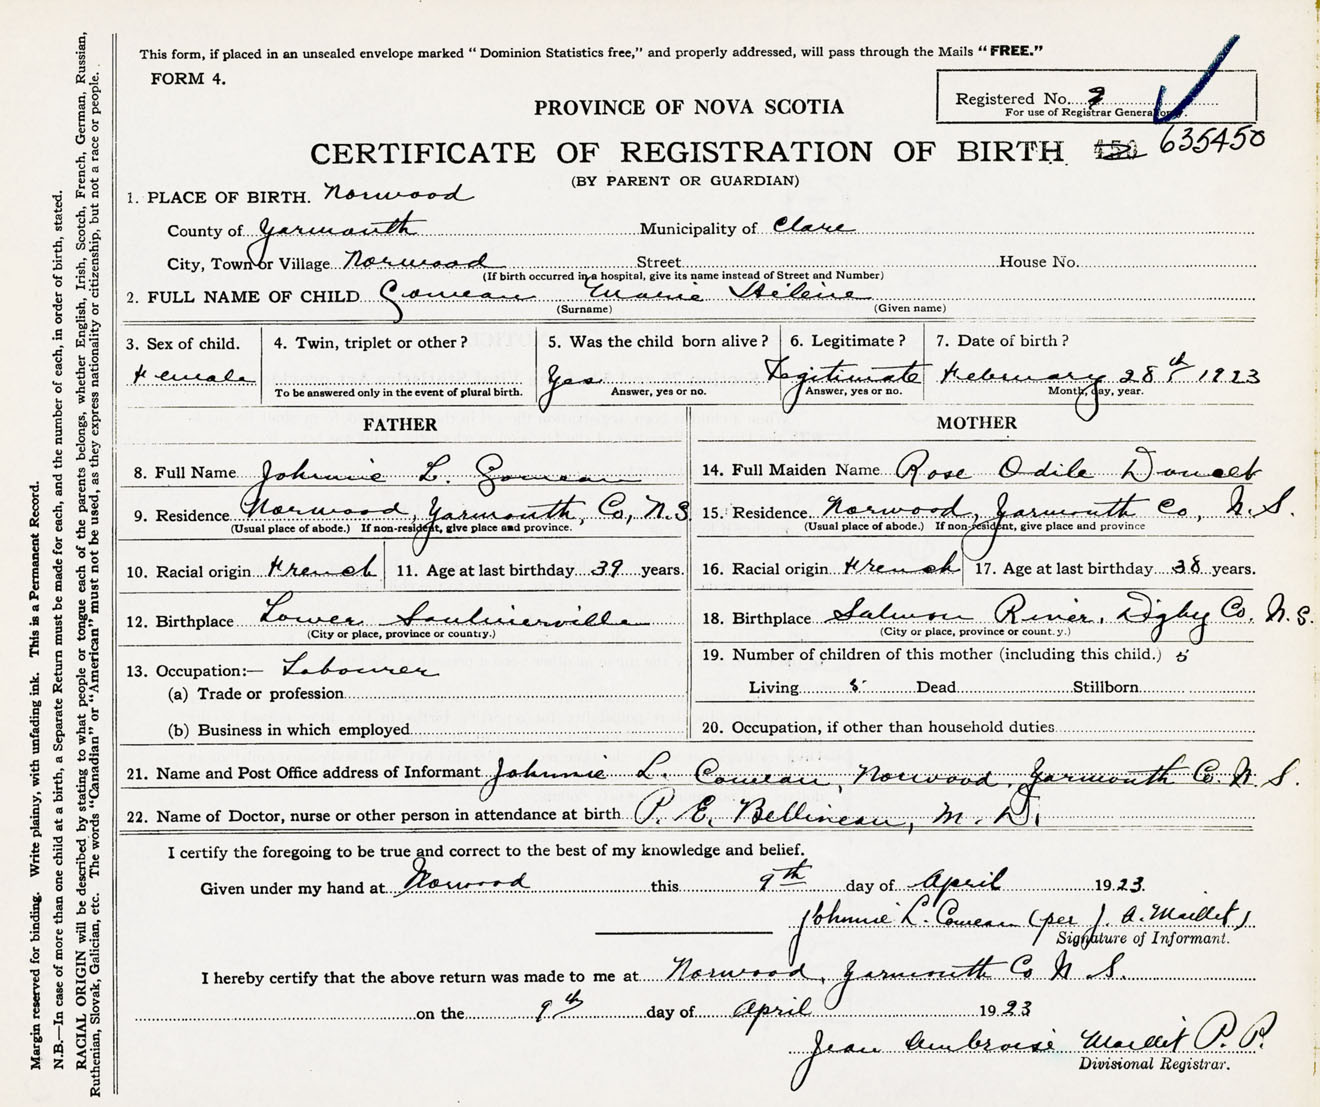 This form, if placed in an unsealed envelope marked "Dominion Statistics free," and properly addressed, will pass through the Mails "FREE."
FORM 4.
Registered No. 9
For use of Registrar General only.
PROVINCE OF NOVA SCOTIA
CERTIFICATE OF REGISTRATION OF BIRTH 450 635450
(BY PARENT OR GUARDIAN)
1. PLACE OF BIRTH. Norwood
County of Yarmouth Municipality of Clare
City, Town or Village Norwood Street House No.
(If birth occurred in a hospital, give its name instead of Street and Number)
2. FULL NAME OF CHILD Comeau Marie Hélène
(Surname) (Given name)
3. Sex of child. 4. Twin, triplet or other? 5. Was the child born alive? 6. Legitimate? 7. Date of birth?
Female Yes Legitimate February 28th 1923
To be answered only in the event of plural birth. Answer, yes or no. Answer, yes or no. Month, day, year.
FATHER MOTHER
8. Full Name Johnnie L. Comeau 14. Full Maiden Name Rose Odile Doucet
9. Residence Norwood, Yarmouth, Co, N.S 15. Residence Norwood, Yarmouth Co, N.S.
(Usual place of abode.) If non-resident, give place and province. (Usual place of abode.) If non-resident, give place and province
10. Racial origin French 11. Age at last birthday 39 years. 16. Racial origin French 17. Age at last birthday 38 years.
12. Birthplace Lower Saulnierville 18. Birthplace Salmon River, Digby Co. N.S.
(City or place, province or country.) (City or place, province or count.y.)
13. Occupation:— Labourer 19. Number of children of this mother (including this child.) 5
(a) Trade or profession Living 5 Dead Stillborn
(b) Business in which employed 20. Occupation, if other than household duties
21. Name and Post Office address of Informant Johnnie L. Comeau, Norwood, Yarmouth Co. N.S.
22. Name of Doctor, nurse or other person in attendance at birth P. E. Belliveau, M.D.
I certify the foregoing to be true and correct to the best of my knowledge and belief.
Given under my hand at Norwood this 9th day of April 1923.
Johnnie L. Comeau (per J. A. Maillet)
Signature of Informant.
I hereby certify that the above return was made to me at Norwood, Yarmouth Co N.S.
on the 9th day of April 1923
Jean Ambroise Maillet P. P.
Divisional Registrar.
Margin reserved for binding. Write plainly, with unfading ink. This is a Permanent Record.
N.B.—In case of more than one child at a birth, a Separate Return must be made for each, and the number of each, in order of birth, stated.
RACIAL ORIGIN will be described by stating to what people or tongue each of the parents belongs, whether English, Irish, Scotch, French, German, Russian,
Ruthenian, Slovak, Galician, etc. The words "Canadian" or "American" must not be used, as they express nationality or citizenship, but not a race or people.